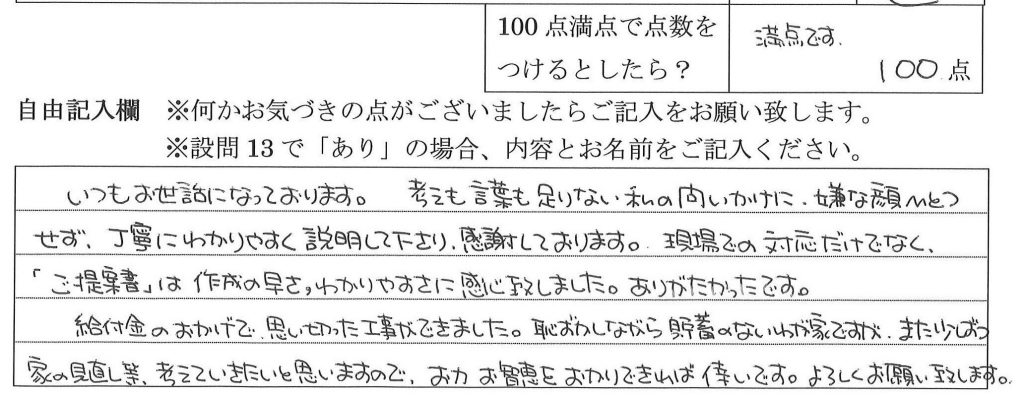 100点満点で点数を
つけるとしたら？
満点です.
100 点
自由記入欄 ※何かお気づきの点がございましたらご記入をお願い致します。
※設問13で「あり」の場合、内容とお名前をご記入ください。
いつもお世話になっております。 考えも言葉も足りない私の問いかけに、嫌な顔ひとつ
せず、丁寧にわかりやすく説明して下さり、感謝しております。現場での対応だけでなく、
「ご提案書」は作成の早さ、わかりやすさに感心致しました。ありがたかったです。
給付金のおかげで、思い切った工事ができました。恥ずかしながら貯蓄のないわが家ですが、また少しずつ
家の見直し等、考えていきたいと思いますので、お力 お智恵を おかりできれば幸いです。よろしくお願い致します。